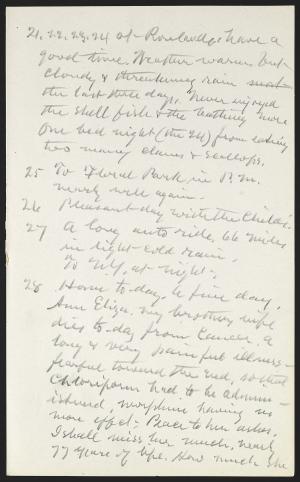 21, 22, 23, 24 at Rowlands, have a
good time, Weather warm but
cloudy & threatening rain most
the last three days. Never enjoyed
the shell fish & the bathing more
One bad night (the 24) from eating
too many clams & scallops.
25 To Floral Park in P.M.
nearly well again.
26 Pleasant day with the Childs.
27 A long auto ride, 66 miles
in light cold rain.
To N.Y. at night.
28 Home to-day, a fine day,
Ann Eliza, my brothers wife
dies to-day from Cancer, a
long & very painful illness—
fearful toward the end, so that
Chloriform had to be admin-
istered, morphine having no
more effect. Peace to her ashes.
I shall miss her much, nearly
77 years of life. How much she